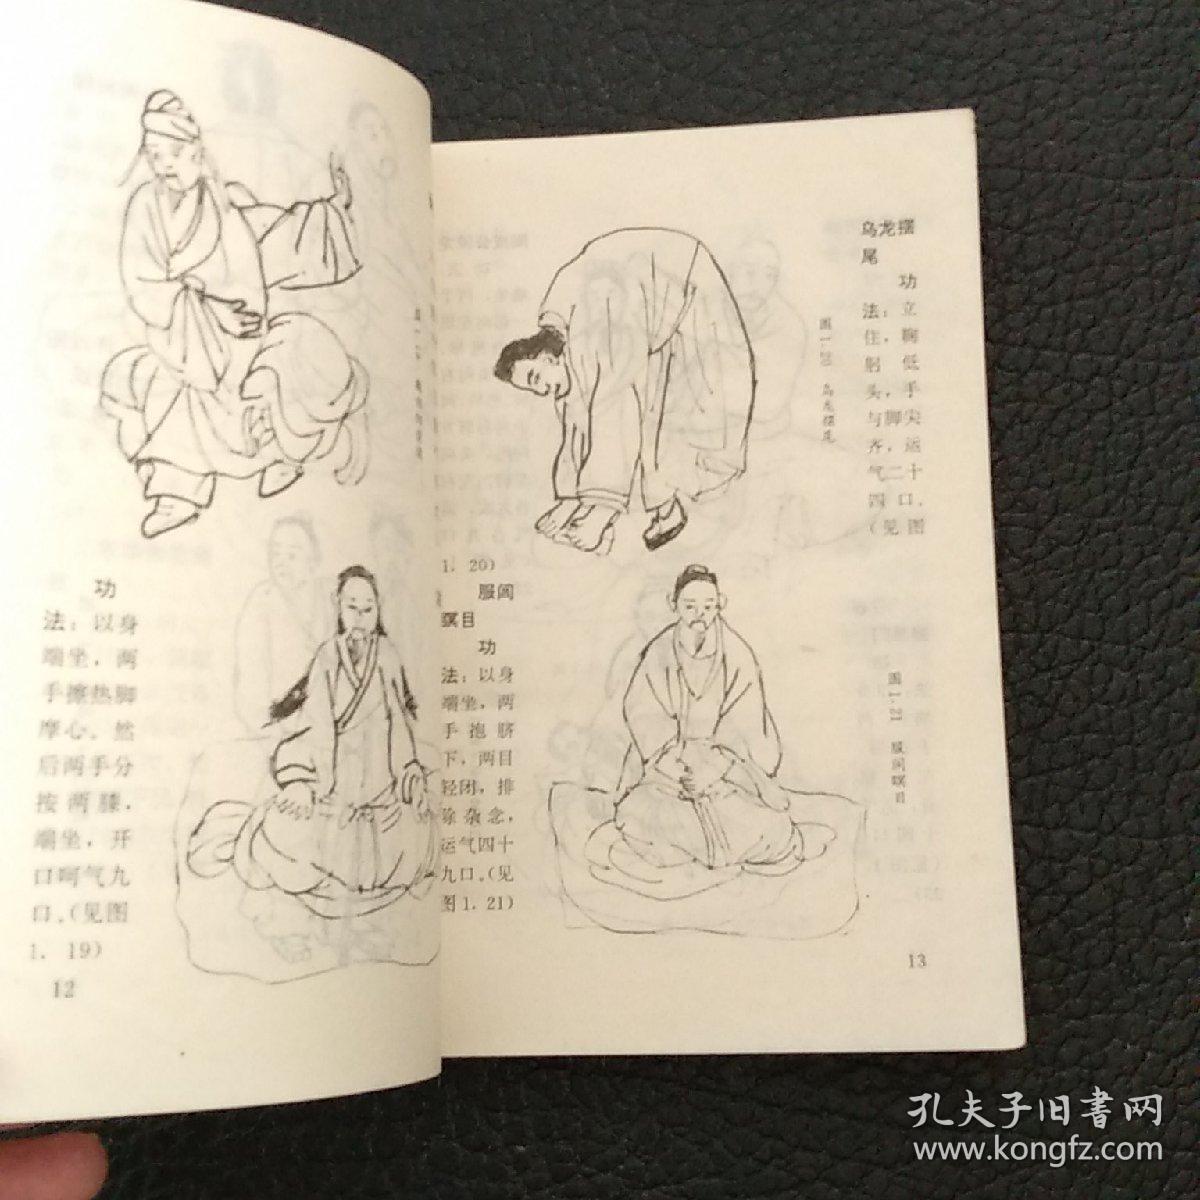 功
法：以身
端坐，两
手擦热脚
摩心、然
后两手分
按两膝，
端坐，开
口呵气九
口。（见图
1．19）
12
乌龙摆
尾
功
法：立
住，鞠
躬低
头，手
与脚尖
齐，运
气二十
四口．
（见图
1．20）
图1.20 乌龙摆尾
服阎
瞑目
功
法：以身
端坐，两
手抱脐
下，两目
轻闭，排
除杂念，
运气四十
九口。（见
图1．21）
图1.21 服阎瞑目
13
孔夫子旧書网
www.kongfz.com